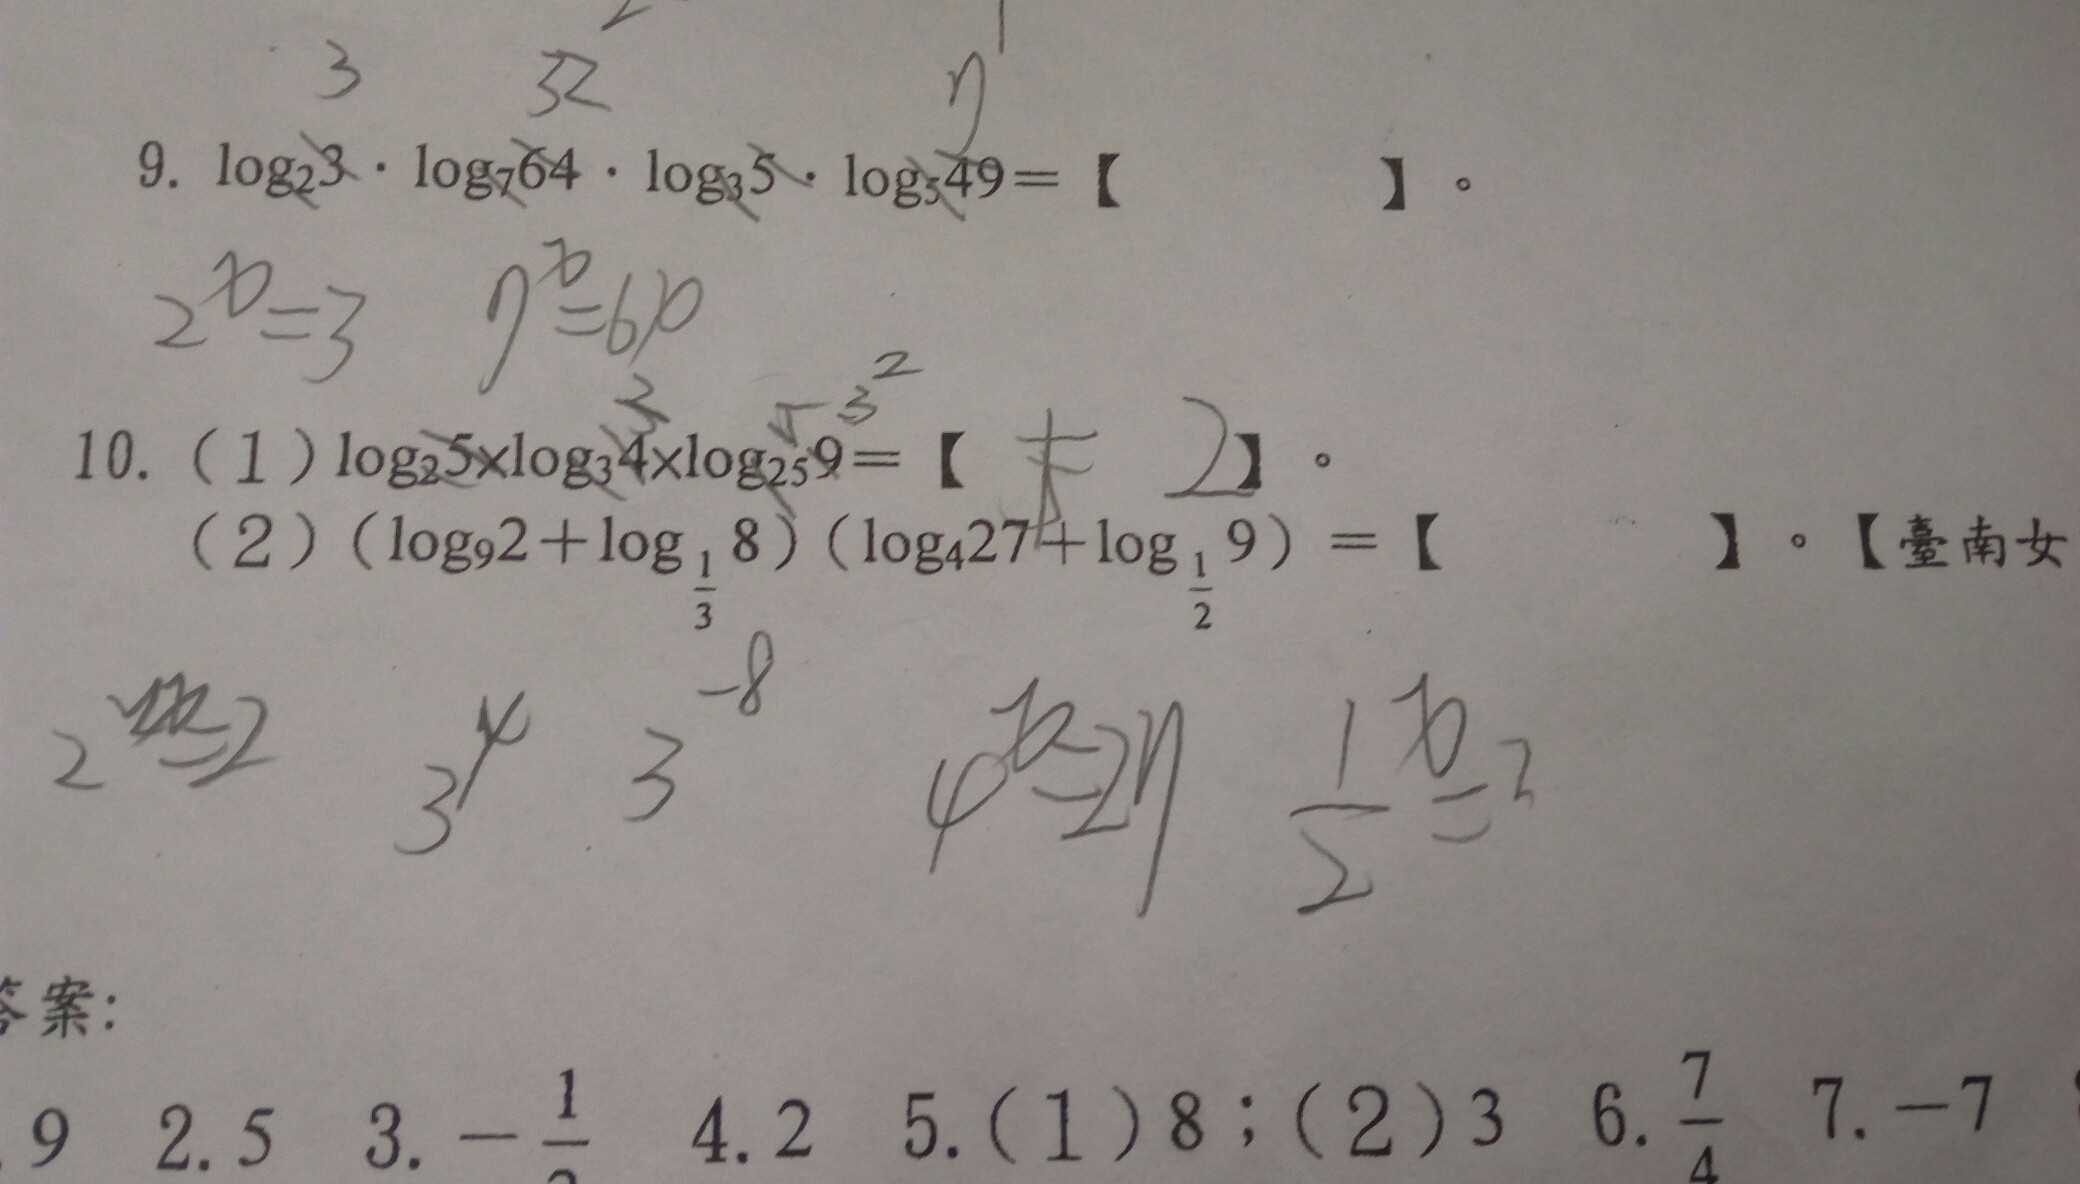 3 32 7
9. log₂3 · log₇64 · log₃5 · log₅49=【 】。
2ˣ=3 7ˣ=6
2 5 3²
10.(1)log₂5×log₃4×log₂₅9=【 2】。
(2)(log₉2+log_{1/3} 8)(log₄27+log_{1/2} 9)=【 】。【臺南女
2 =2 3 3⁻⁸ 4ˣ=27 1/2ˣ=
答案:
9 2.5 3.-1/ 4.2 5.(1)8;(2)3 6.7/4 7.-7